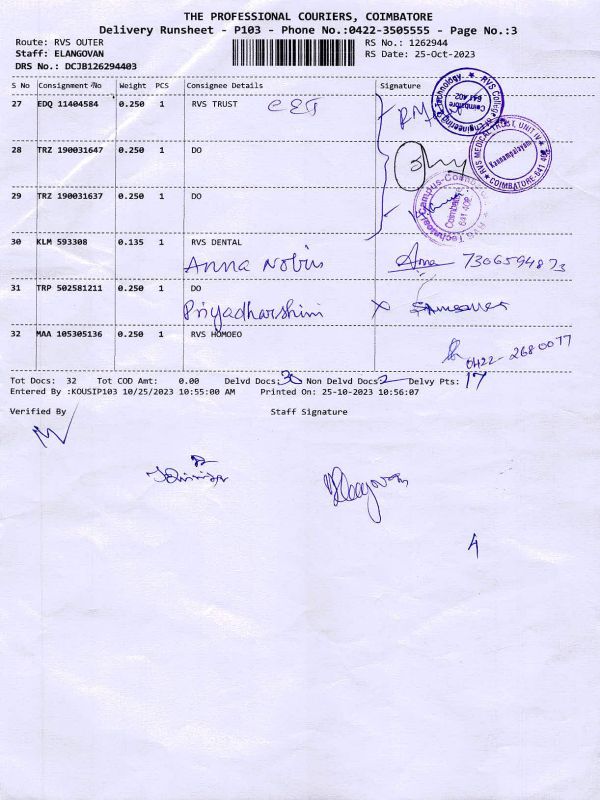 THE PROFESSIONAL COURIERS, COIMBATORE
Delivery Runsheet - P103 - Phone No.:0422-3505555 - Page No.:3
Route: RVS OUTER RS No.: 1262944
Staff: ELANGOVAN RS Date: 25-Oct-2023
DRS No.: DCJB126294403
S No Consignment No Weight PCS Consignee Details Signature
27 EDQ 11404584 0.250 1 RVS TRUST
28 TRZ 190031647 0.250 1 DO
29 TRZ 190031637 0.250 1 DO
30 KLM 593308 0.135 1 RVS DENTAL
Anna Nobin 7306594873
31 TRP 502581211 0.250 1 DO
Priyadharshini
32 MAA 105305136 0.250 1 RVS HOMOEO
0422-2680077
Tot Docs: 32 Tot COD Amt: 0.00 Delvd Docs: 30 Non Delvd Docs: 2 Delvy Pts: 17
Entered By :KOUSIP103 10/25/2023 10:55:00 AM Printed On: 25-10-2023 10:56:07
Verified By Staff Signature
Elangovan
RVS College of Engineering & Technology
Coimbatore
641 402
RVS MEDICAL TRUST, UNIT IV
Kannampalayam
COIMBATORE-641 402
Coimbatore
641 402